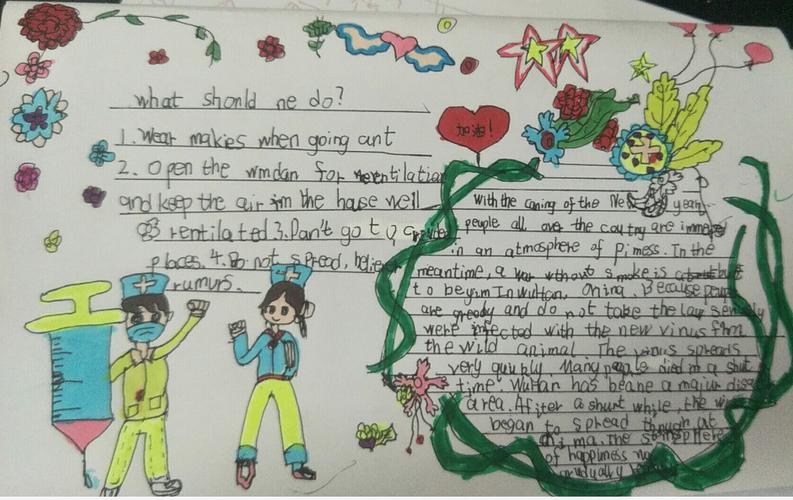 what should ne do?
1. Wear makies when going ant
2. Open the wmdan for ventilation
and keep the air im the hause well
rentilated 3. Dan't go to
places. 4. Do not spread,
rumurs.
加油!
With the caning of the Ne year
people all over the coutry are
in an atmosphere of Pimess. In the
meantime, a war without smoke is
to begum In WuHan, China. Because
are greedy and do not take the law
were infected with the new virus from
the wild animal. The virus spreads
very quickly. Many people died in a shut
time. WuHan has beane a majur
area. Afiter a shurt while, the
began to spread through at
China. The
of happimess